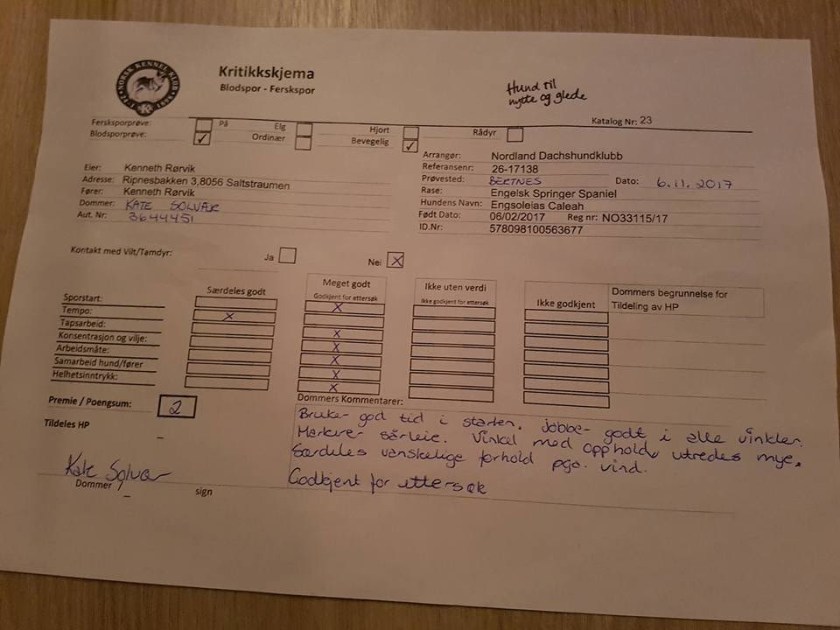 NORSK KENNEL KLUB
Kritikkskjema
Blodspor - Ferskspor
Hund til
nytte og glede
Katalog Nr: 23
Fersksporprøve: På Elg Hjort Rådyr
Blodsporprøve: ✓ Ordinær Bevegelig ✓
Arrangør: Nordland Dachshundklubb
Referansenr: 26-17138
Prøvested: BERTNES Dato: 6.11.2017
Rase: Engelsk Springer Spaniel
Hundens Navn: Engsoleias Caleah
Født Dato: 06/02/2017 Reg nr: NO33115/17
ID.Nr: 578098100563677
Eier: Kenneth Rørvik
Adresse: Ripnesbakken 3,8056 Saltstraumen
Fører: Kenneth Rørvik
Dommer: KATE SOLVÆR
Aut. Nr: 3644451
Kontakt med Vilt/Tamdyr: Ja Nei X
Særdeles godt
Meget godt
Godkjent for ettersøk
Ikke uten verdi
Ikke godkjent for ettersøk
Ikke godkjent
Dommers begrunnelse for
Tildeling av HP
Sporstart: X
Tempo: X
Tapsarbeid: X
Konsentrasjon og vilje: X
Arbeidsmåte: X
Samarbeid hund/fører X
Helhetsinntrykk: X
Premie / Poengsum: 2
Tildeles HP
–
Dommers Kommentarer:
Bruker god tid i starten. Jobber godt i alle vinkler.
Markerer sårleie. Vinkel med opphold utredes mye.
Særdeles vanskelige forhold pga. vind.
Godkjent for ettersøk
Kate Solvær
Dommer sign
–